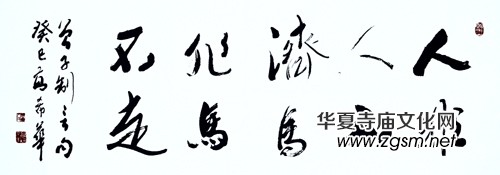 人非
人不
濟馬
非馬
不走
曾子制言句
癸巳高希華
华夏寺庙文化网
www.zgsm.net